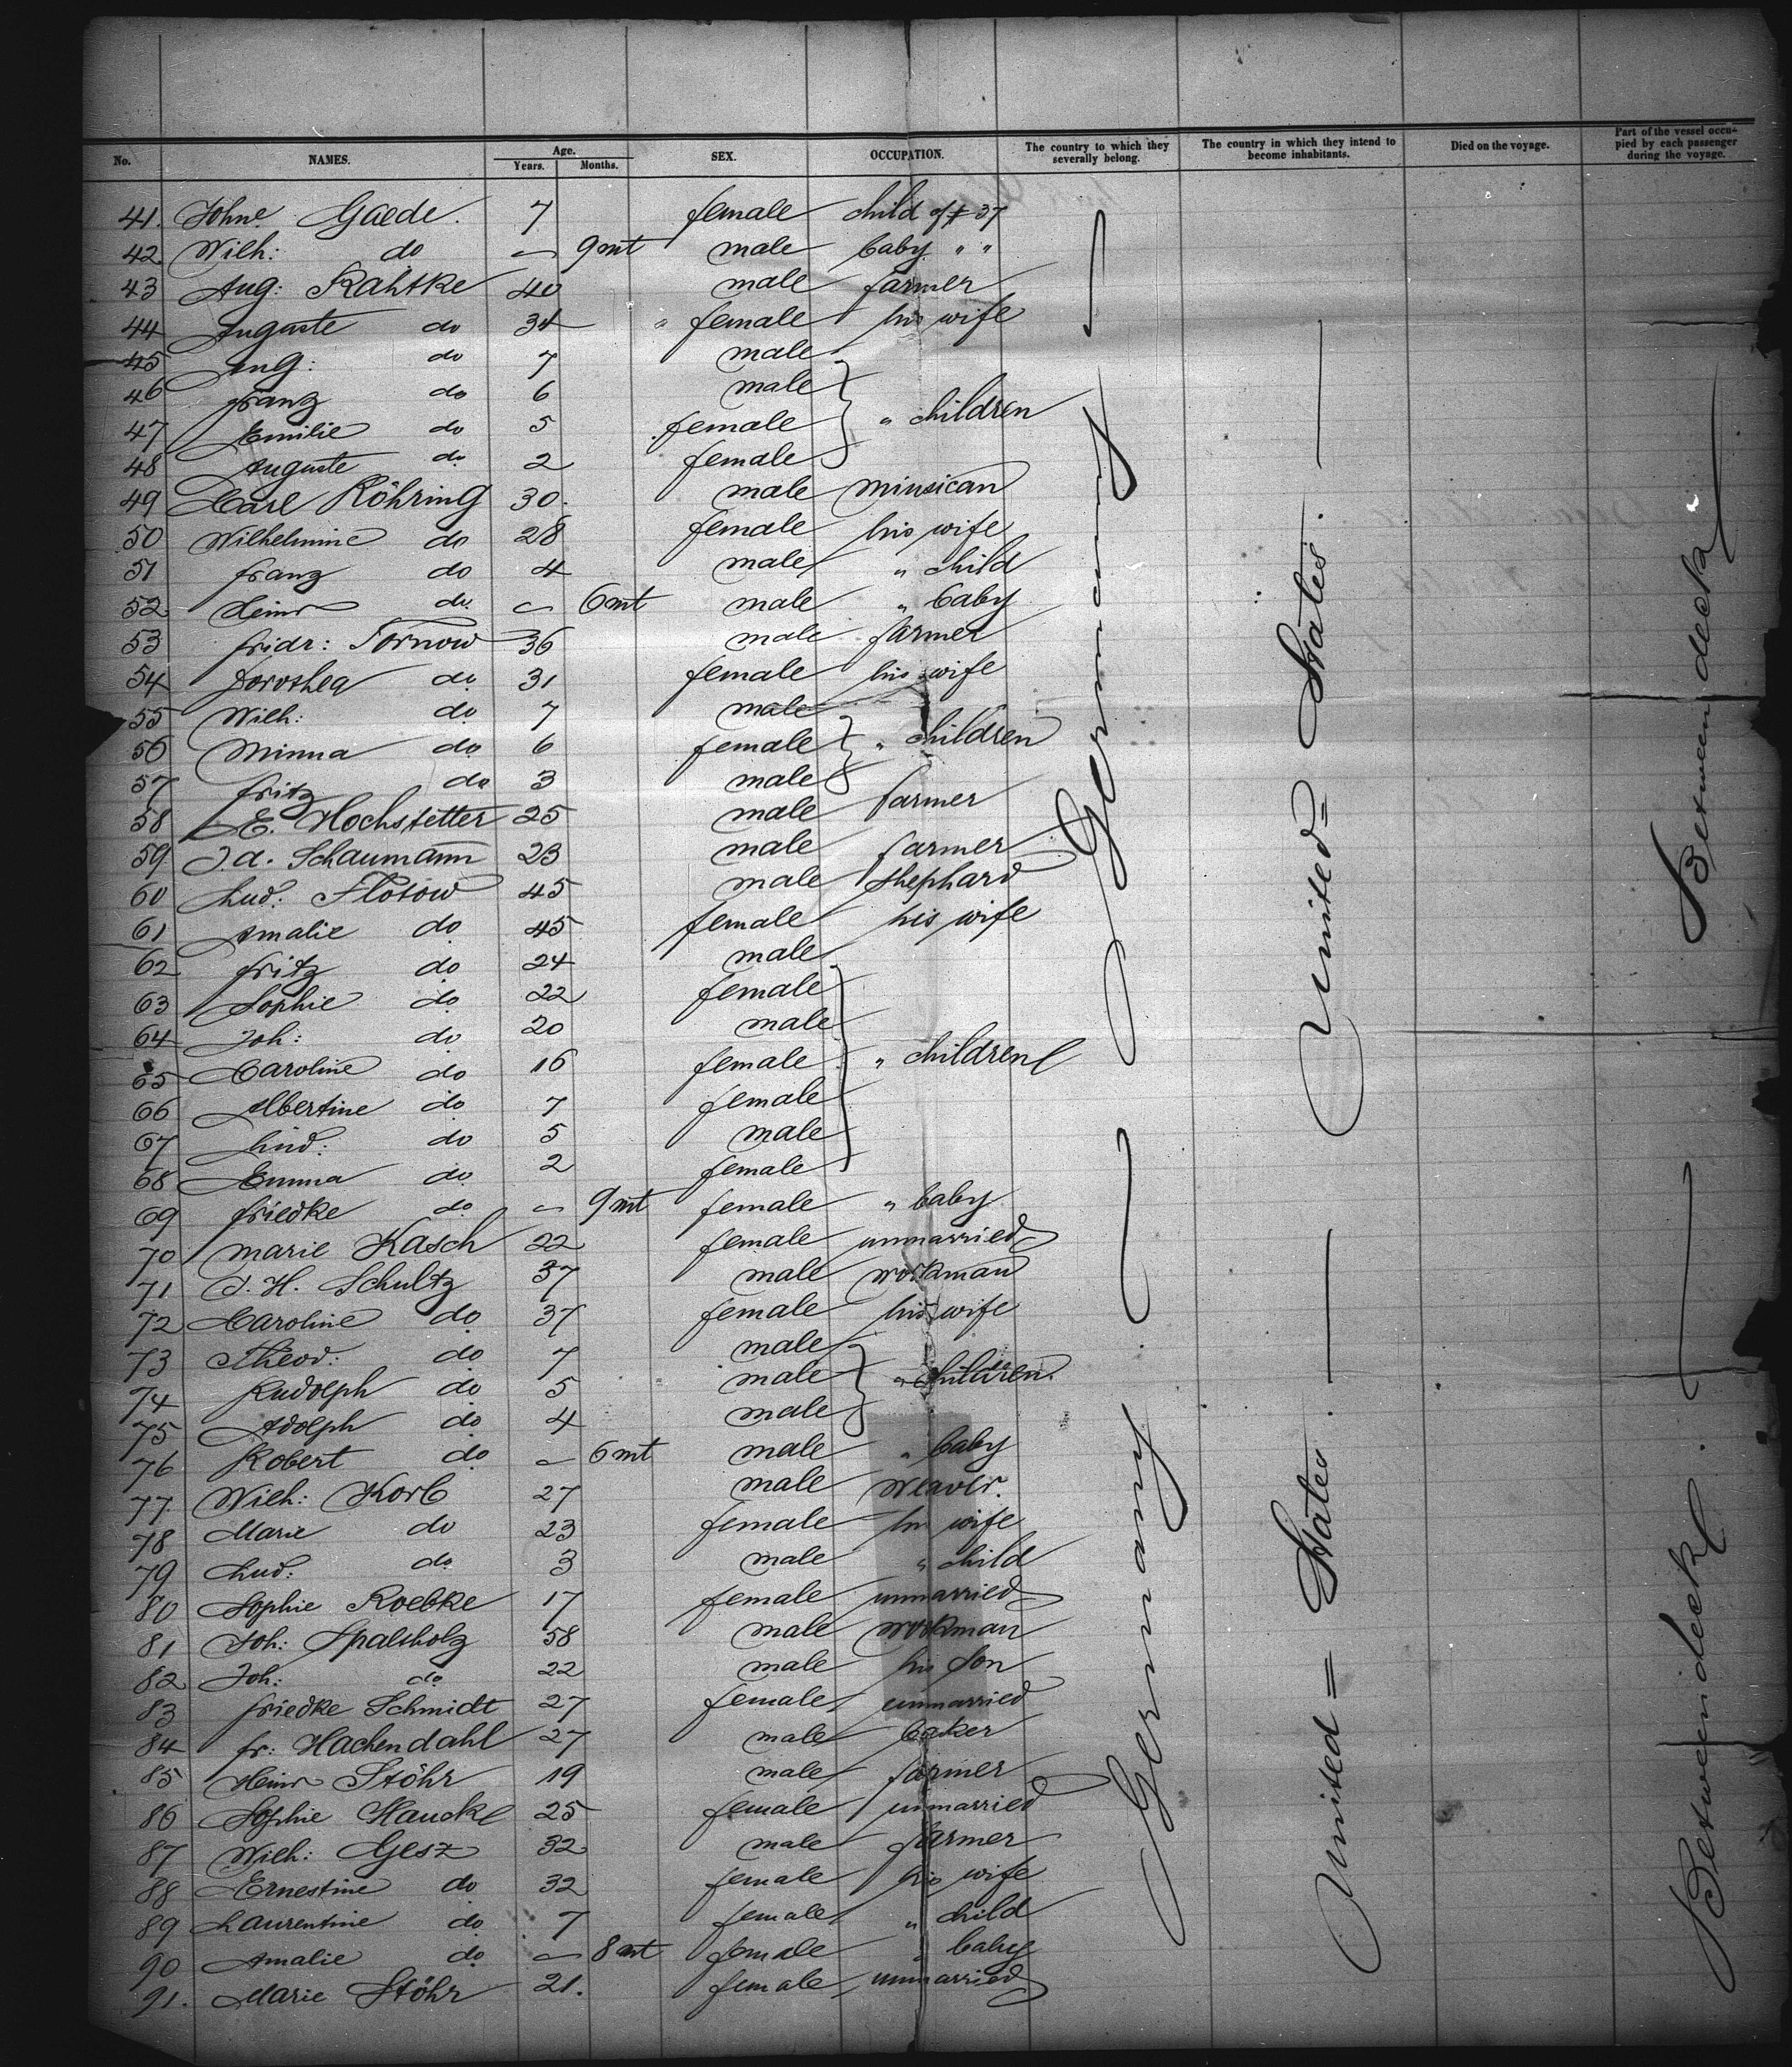 No. NAMES. Age. Years. Months. SEX. OCCUPATION. The country to which they severally belong. The country in which they intend to become inhabitants. Died on the voyage. Part of the vessel occupied by each passenger during the voyage.
41. Johne Gaede. 7 female child of # 37
42. Wilh: do — 9 mt male baby " "
43 Aug: Rahtke 40 male farmer
44 Auguste do 34 female his wife
45 Aug: do 7 male
46 franz do 6 male
47 Emilie do 5 female " children
48 Auguste do 2 female
49 Carl Röhring 30. male minsican
50 Wilhelmine do 28 female his wife
51 franz do 4 male " child
52 Heinr do — 6 mt male " baby
53 fridr: Tornow 36 male farmer
54 Dorothea do 31 female his wife
55 Wilh: do 7 male
56 Minna do 6 female " children
57 fritz do 3 male
58 E. Hochstetter 25 male farmer
59 J. a. Schaumann 23 male farmer
60 Lud: Flotow 45 male shephard
61 Amalie do 45 female his wife
62 fritz do 24 male
63 Sophie do 22 female
64 Joh: do 20 male
65 Caroline do 16 female " children
66 Albertine do 7 female
67 Lud: do 5 male
68 Emma do 2 female
69 friedke do — 9 mt female " baby
70 marie Kasch 22 female unmarried
71 J. H. Schultz 37 male workman
72 Caroline do 37 female his wife
73 Theod: do 7 male
74 Rudolph do 5 male " children
75 Adolph do 4 male
76 Robert do — 6 mt male " baby
77. Wilh: Korb 27 male weaver.
78 Marie do 23 female his wife
79 Lud: do 3 male " child
80 Sophie Roebke 17 female unmarried
81 Joh: Spalsholz 58 male workman
82 Joh: do 22 male his son
83 friedke Schmidt 27 female unmarried
84 fr: Hachendahl 27 male baker
85 Heinr Stöhr 19 male farmer
86 Sophie Haucke 25 female unmarried
87 Wilh: Gesz 32 male farmer
88 Ernestine do 32 female his wife
89 Laurentine do 7 female " child
90 Amalie do — 8 mt female " baby
91. Marie Stöhr 21. female unmarried
Germany
Germany
United = States
United = States
Between deck
Between deck